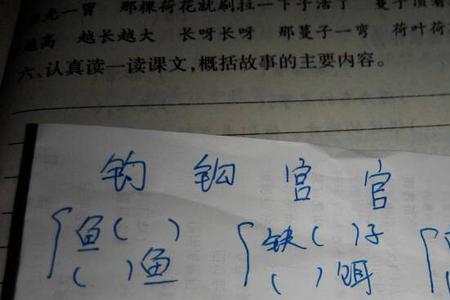 光一冒 那棵荷花就刷拉一下子活了 蔓子顶着
越高 越长越大 长呀长呀 那蔓子一弯 荷叶荷
六、认真读一读课文,概括故事的主要内容。
钓 钩 宫 官
鱼( ) 缺( )子
( )鱼 ( )饵